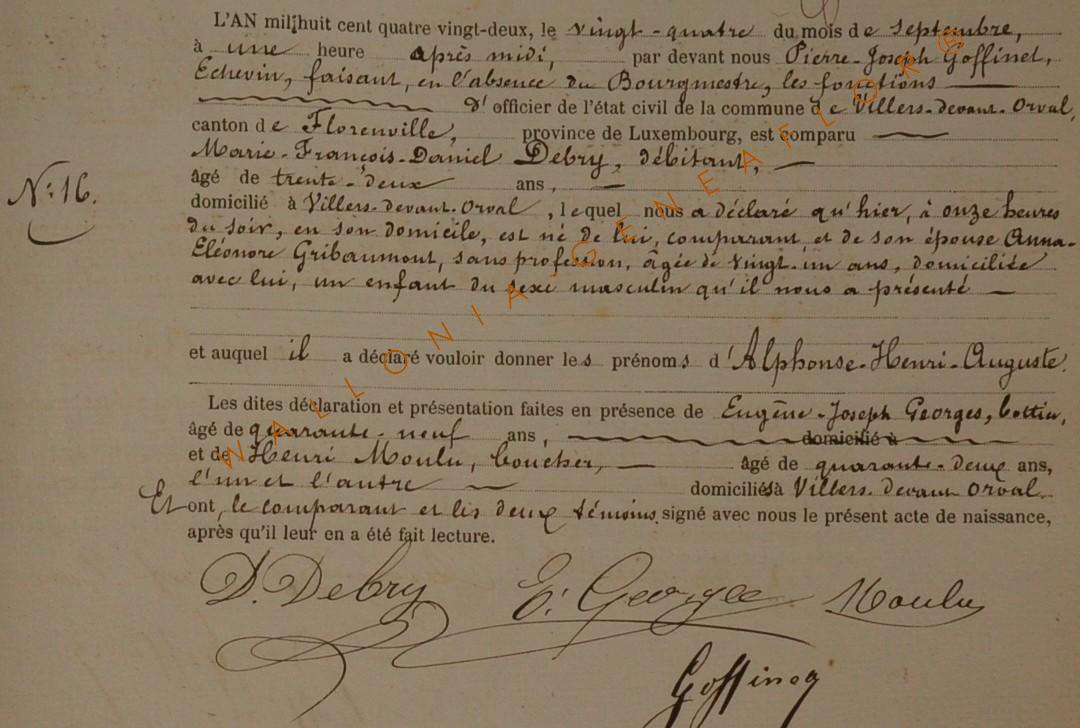 L'AN mil huit cent quatre vingt-deux, le vingt-quatre du mois de septembre,
à une heure après midi, par devant nous Pierre-Joseph Goffinet,
Echevin, faisant, en l'absence du Bourgmestre, les fonctions
d'officier de l'état civil de la commune de Villers-devant-Orval,
canton de Florenville, province de Luxembourg, est comparu
Marie-François-Daniel Debry, débitant,
N: 16.
âgé de trente-deux ans,
domicilié à Villers-devant-Orval, lequel nous a déclaré qu'hier, à onze heures
du soir, en son domicile, est né de lui, comparant, et de son épouse Anna-
Eléonore Gribaumont, sans profession, âgée de vingt-un ans, domiciliée
avec lui, un enfant du sexe masculin qu'il nous a présenté
et auquel il a déclaré vouloir donner les prénoms d'Alphonse-Henri-Auguste.
Les dites déclaration et présentation faites en présence de Eugène-Joseph Georges,
âgé de quarante-neuf ans, domicilié à
et de Henri Moulu, boucher, âgé de quarante-deux ans,
l'un et l'autre domiciliés à Villers-devant-Orval.
Et ont, le comparant et les deux témoins signé avec nous le présent acte de naissance,
après qu'il leur en a été fait lecture.
D. Debry E. Georges Moulu
Goffinet
WALLONIA GENEAFLORE